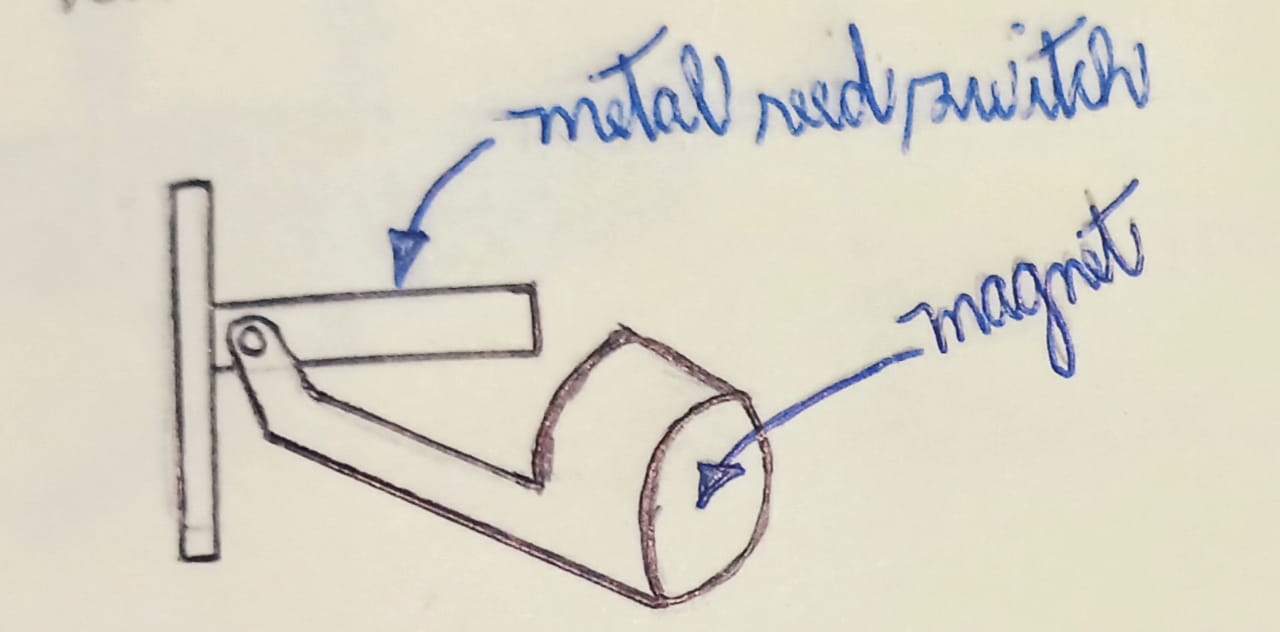 metal reed switch
magnet